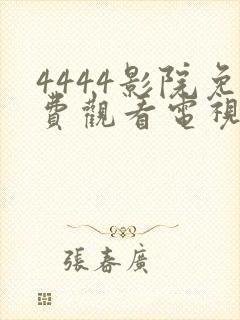 4444影院免
費觀看電視
張春廣